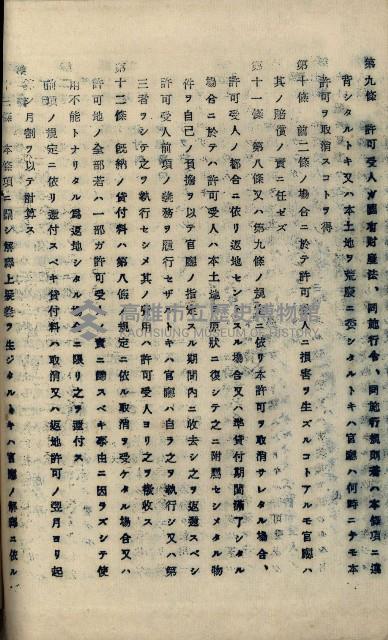 第九條 許可受人ガ國有財產法、同施行令、同施行規則若ハ本條項ニ違
背シタルトキ又ハ本土地ヲ荒廢ニ委シタルトキハ官廳ハ何時ニテモ本
許可ヲ取消スコトヲ得
第十條 前二條ノ場合ニ於テ許可受人ニ損害ヲ生ズルコトアルモ官廳ハ
其ノ賠償ノ責ニ任ゼズ
第十一條 第八條又ハ第九條ノ規 依リ本許可ヲ取消サレタル場合、
許可受人ノ都合ニ依リ返地セン ル場合又ハ準貸付期間滿了シタル
場合ニ於テハ許可受人ハ本土地 原狀ニ復シテ之ニ附 セシメタル物
件ヲ自己ノ負擔ヲ以テ官廳ノ指定 ル期間內ニ收去シ之ヲ返還スベシ
許可受人前項ノ義務ヲ履行セザ キハ官廳ハ自ラ之ヲ執行シ又ハ第
三者ヲシテ之ヲ執行セシメ其ノ 用ハ許可受人ヨリ之ヲ徵收ス
第十二條 既納ノ貸付料ハ第八條 規定ニ依ル取消ヲ受ケタル場合又ハ
許可地ノ全部若ハ一部ガ許可受 責ニ歸スベキ事由ニ因ラズシテ使
用不能トナリタル爲返地シタル ニ限リ之ヲ還付ス
前項ノ規定ニ依リ還付スベキ貸付料ハ取消又ハ返地許可ノ翌月ヨリ起
算シ月割ヲ以テ計算ス
十三條 本條項ニ關シ解釋上疑義ヲ生ジタルトキハ官廳ノ解釋ニ依ル
高雄市立歷史博物館
KAOHSIUNG MUSEUM OF HISTORY